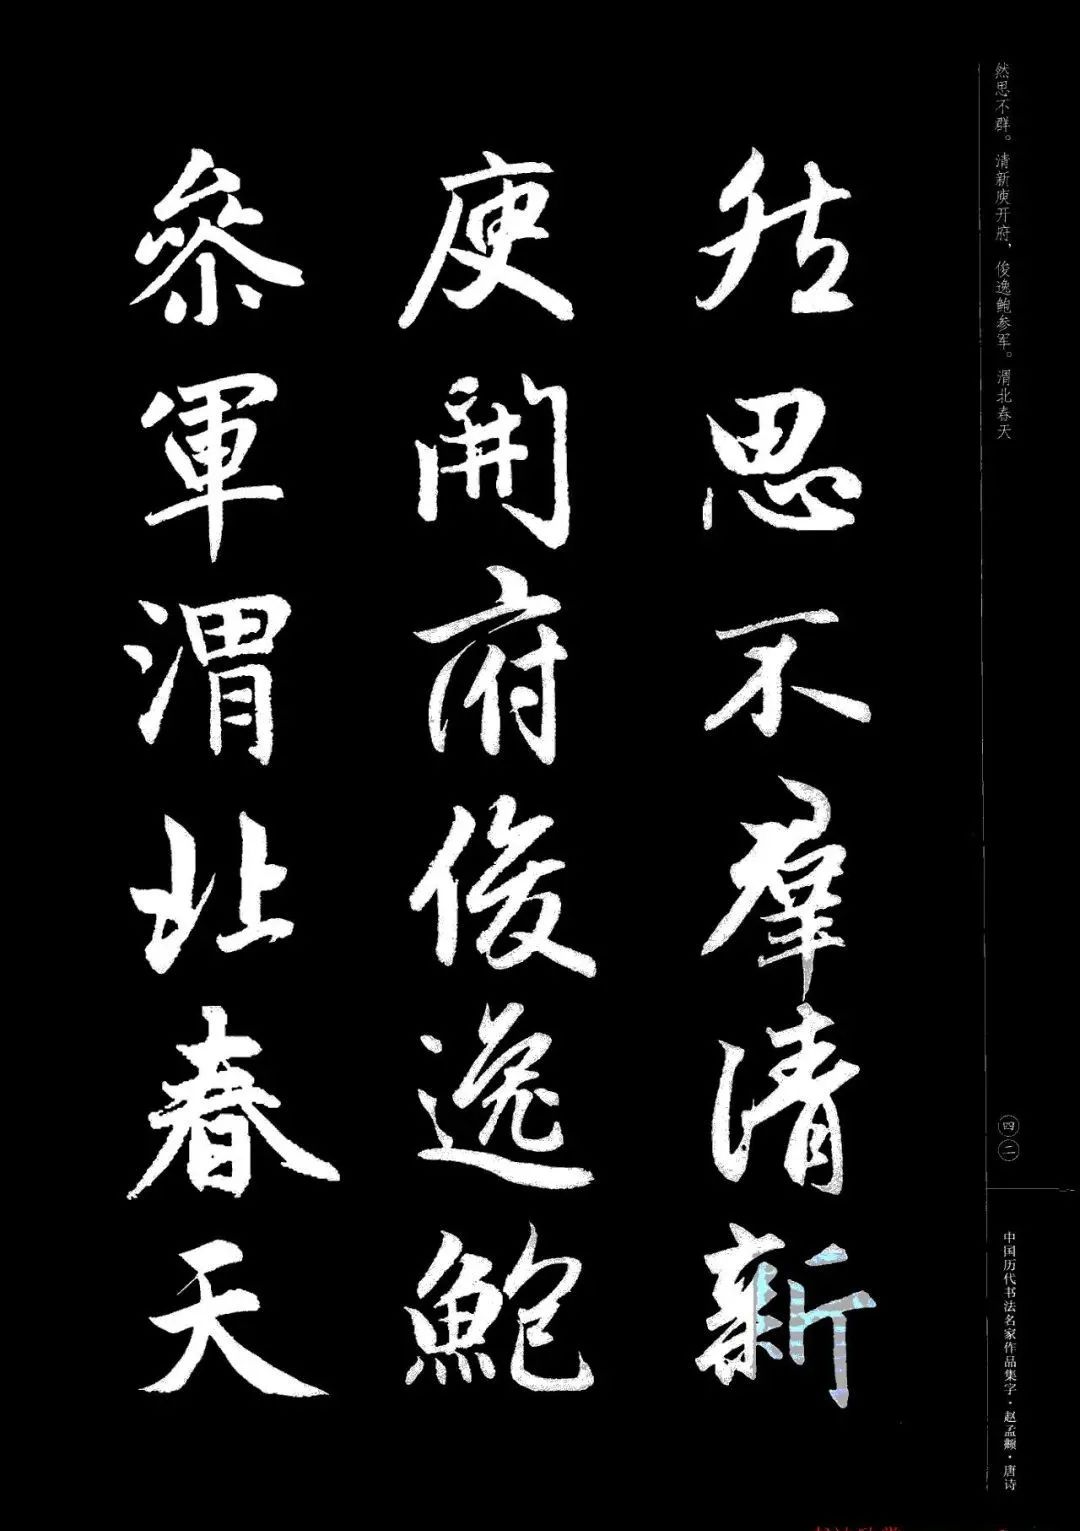 然思不群。清新庾开府，俊逸鲍参军。渭北春天
然思不羣清新
庾開府俊逸鮑
參軍渭北春天
四二
中国历代书法名家作品集字·赵孟頫·唐诗